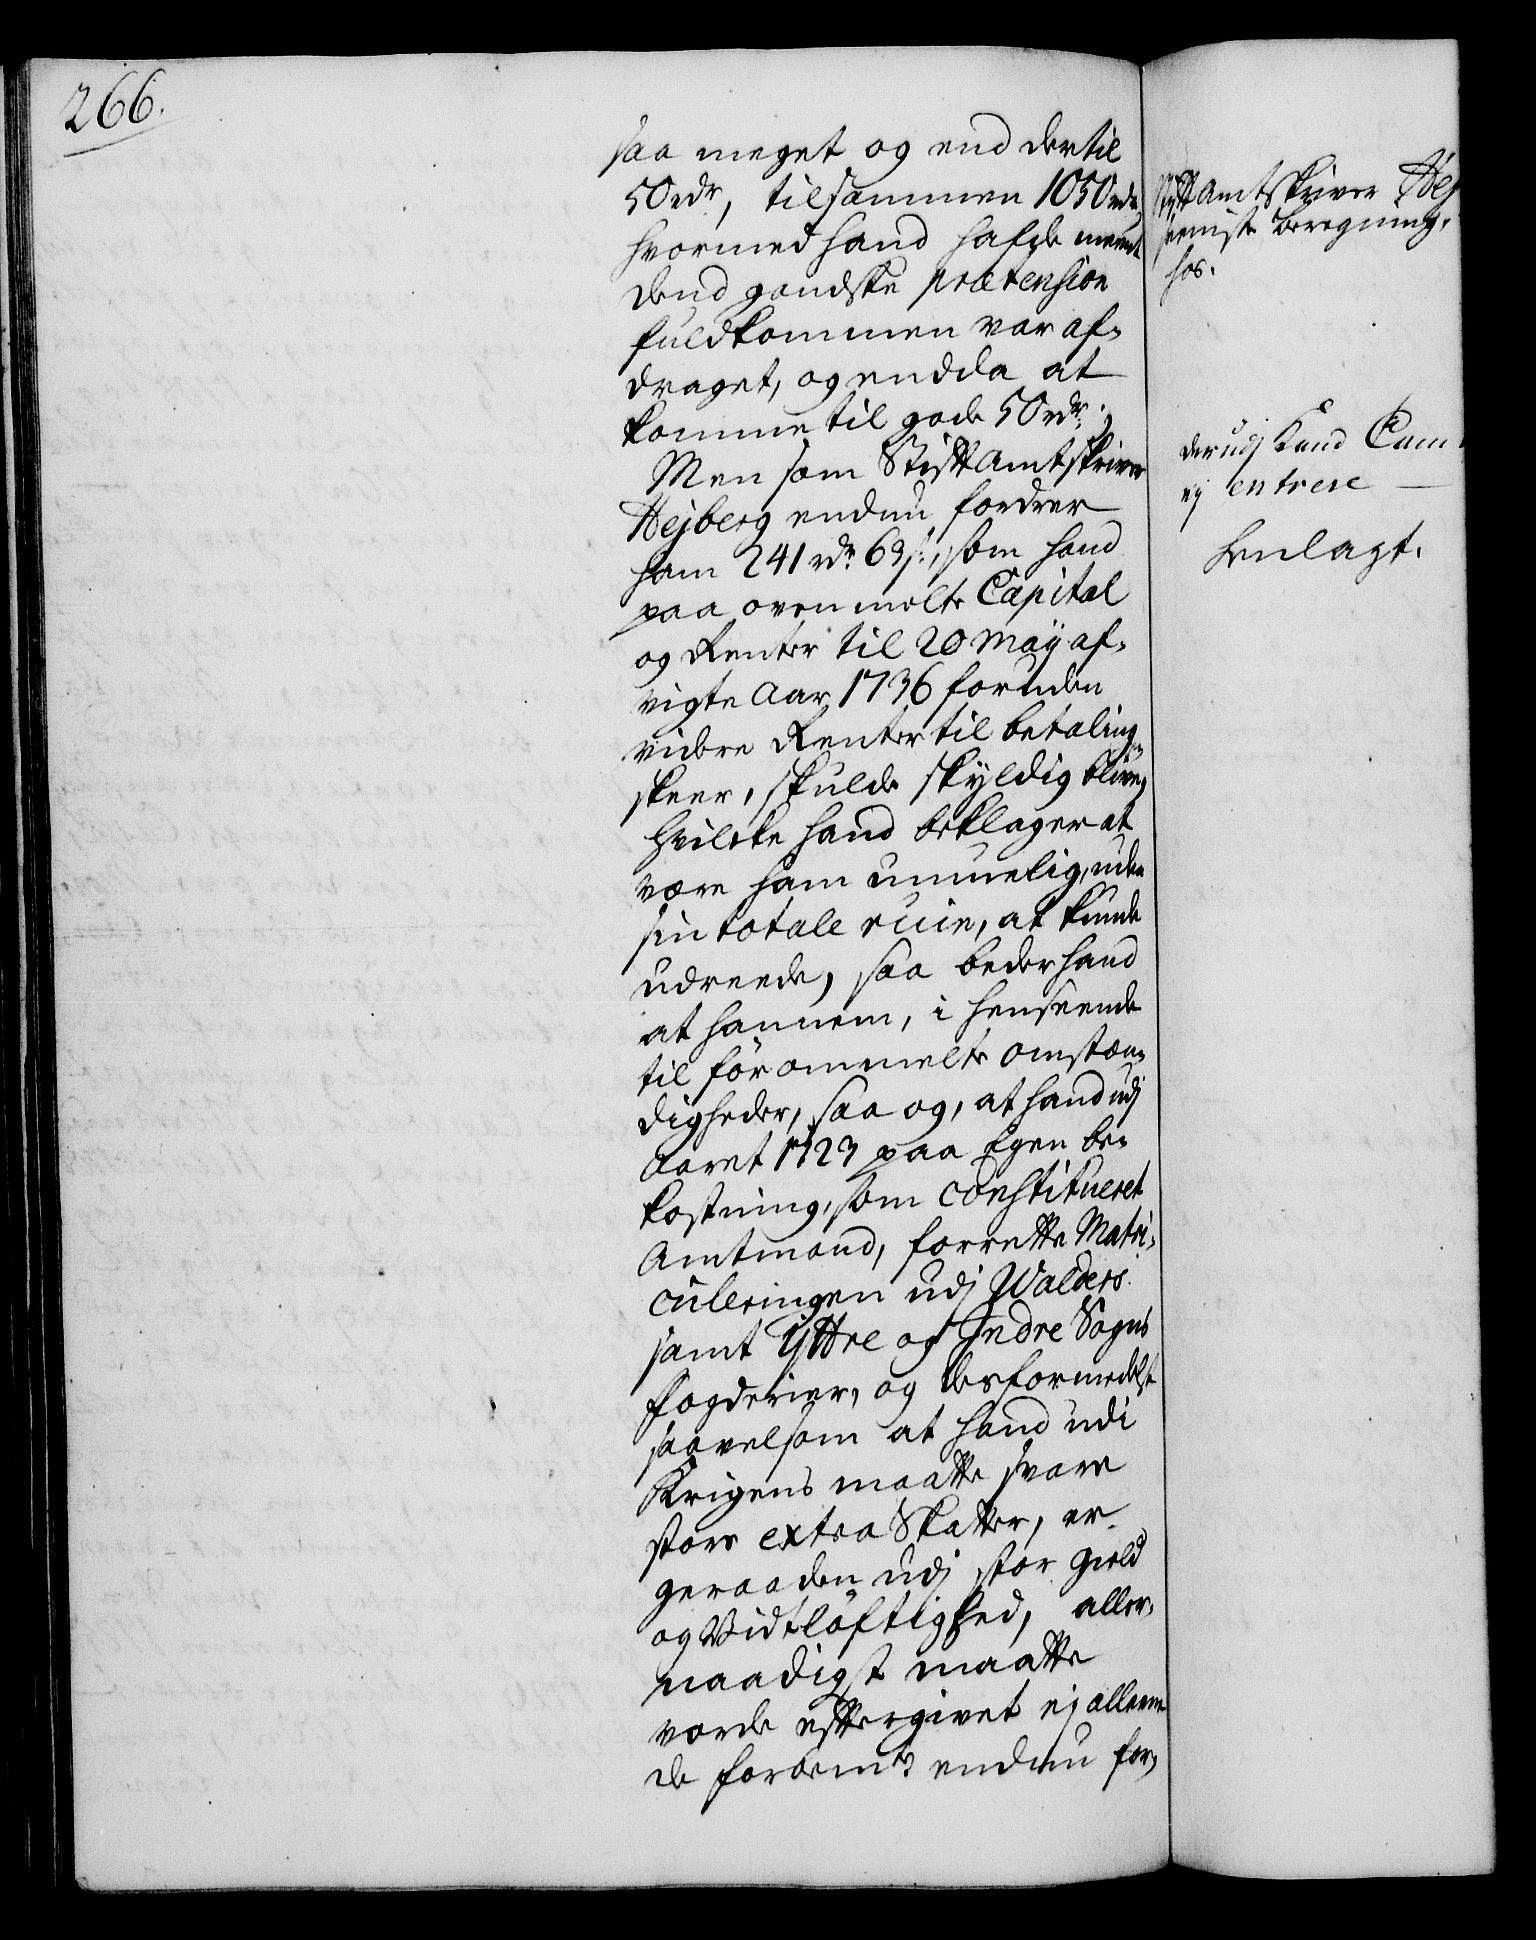 266.
saa meget og end dertil
50 rdr, tilsammen 1050 rdr,
hvormed hand hafde meent
dend gandske prætension
fuldkommen var af-
draget, og endda at
komme til gode 50 rdr;
Men som Stiftamtskriver
Hejberg endnu fordrer
ham 241 rdr 63 s:, som hand
paa ovenmelte Capital
og Renter til 20 Maÿ af-
vigte Aar 1736 foruden
videre Renter til betaling
skeer, skulde skÿldig blive,
hvilcke hand beklager at
være ham umuelig, uden
sin totale ruin, at kunde
udreede, saa beder hand
at hannem, i henseende
til förommelte omstæn-
digheder, saa og, at hand udj
Aaret 1723 paa Egen be-
kostning, som constitueret
Amtmand, forrette Matri-
culeringen udj Walders
samt Ÿttre og Indre Sogns
fogderier, og desformedelst
saavelsom at hand udi
Krigens maatte svare
store extra Skatter, er
geraaden udj stor Gield
og Vidtløftighed, aller-
naadigst maatte
vorde eftergivet ej alleene
de forbemte endnu for-
Stiftamtskriver Hej
beregning,
hos.
derudj kand Cam
ej entrere
henlagt.